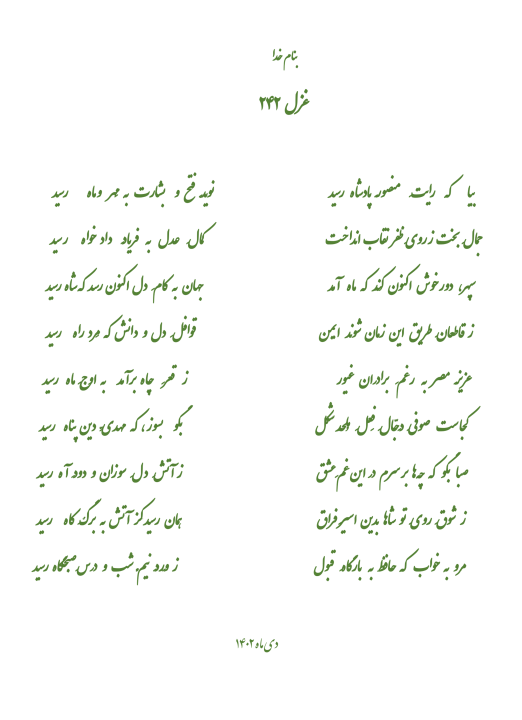 بنام خدا
غزل ۲۴۲
بیا که رایت منصور پادشاه رسید نوید فتح و بشارت به مهر و ماه رسید
جمال بخت ز روی ظفر نقاب انداخت کمال عدل به فریاد دادخواه رسید
سپهر، دور خوش اکنون کند که ماه آمد جهان به کام دل اکنون رسد که شاه رسید
ز قاطعان طریق این زمان شوند ایمن قوافل دل و دانش که مرد راه رسید
عزیز مصر به رغم برادران غیور ز قعر چاه برآمد به اوج ماه رسید
کجاست صوفی دجّال فِعلِ ملحد شکل بگو بسوز، که مهدی دین پناه رسید
صبا بگو که چه‌ها بر سرم در این غم عشق ز آتش دل سوزان و دود آه رسید
ز شوق روی تو شاها بدین اسیر فراق همان رسید کز آتش به برگ کاه رسید
مرو به خواب که حافظ به بارگاه قبول ز ورد نیم شب و درس صبحگاه رسید
دی ماه ۱۴۰۲